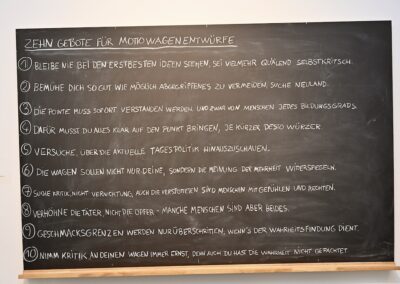 ZEHN GEBOTE FÜR MOTTOWAGENENTWÜRFE
① BLEIBE NIE BEI DEN ERSTBESTEN IDEEN STEHEN, SEI VIELMEHR QUÄLEND SELBSTKRITSCH.
② BEMÜHE DICH SO GUT WIE MÖGLICH ABGEGRIFFENES ZU VERMEIDEN, SUCHE NEULAND.
③ DIE POINTE MUSS SOFORT VERSTANDEN WERDEN. UND ZWAR VON MENSCHEN JEDES BILDUNGSGRADS.
④ DAFÜR MUSST DU ALLES KLAR AUF DEN PUNKT BRINGEN, JE KÜRZER DESTO WÜRZER.
⑤ VERSUCHE, ÜBER DIE AKTUELLE TAGESPOLITIK HINAUSZUSCHAUEN.
⑥ DIE WAGEN SOLLEN NICHT NUR DEINE, SONDERN DIE MEINUNG DER MEHRHEIT WIDERSPIEGELN.
⑦ SUCHE KRITIK, NICHT VERNICHTUNG, AUCH DIE VERSPOTTETEN SIND MENSCHEN MIT GEFÜHLEN UND RECHTEN.
⑧ VERHÖHNE DIE TÄTER, NICHT DIE OPFER - MANCHE MENSCHEN SIND ABER BEIDES.
⑨ GESCHMACKSGRENZEN WERDEN NUR ÜBERSCHRITTEN, WENN'S DER WAHRHEITSFINDUNG DIENT.
⑩ NIMM KRITIK AN DEINEN WAGEN IMMER ERNST, DENN AUCH DU HAST DIE WAHRHEIT NICHT GEPACHTET.